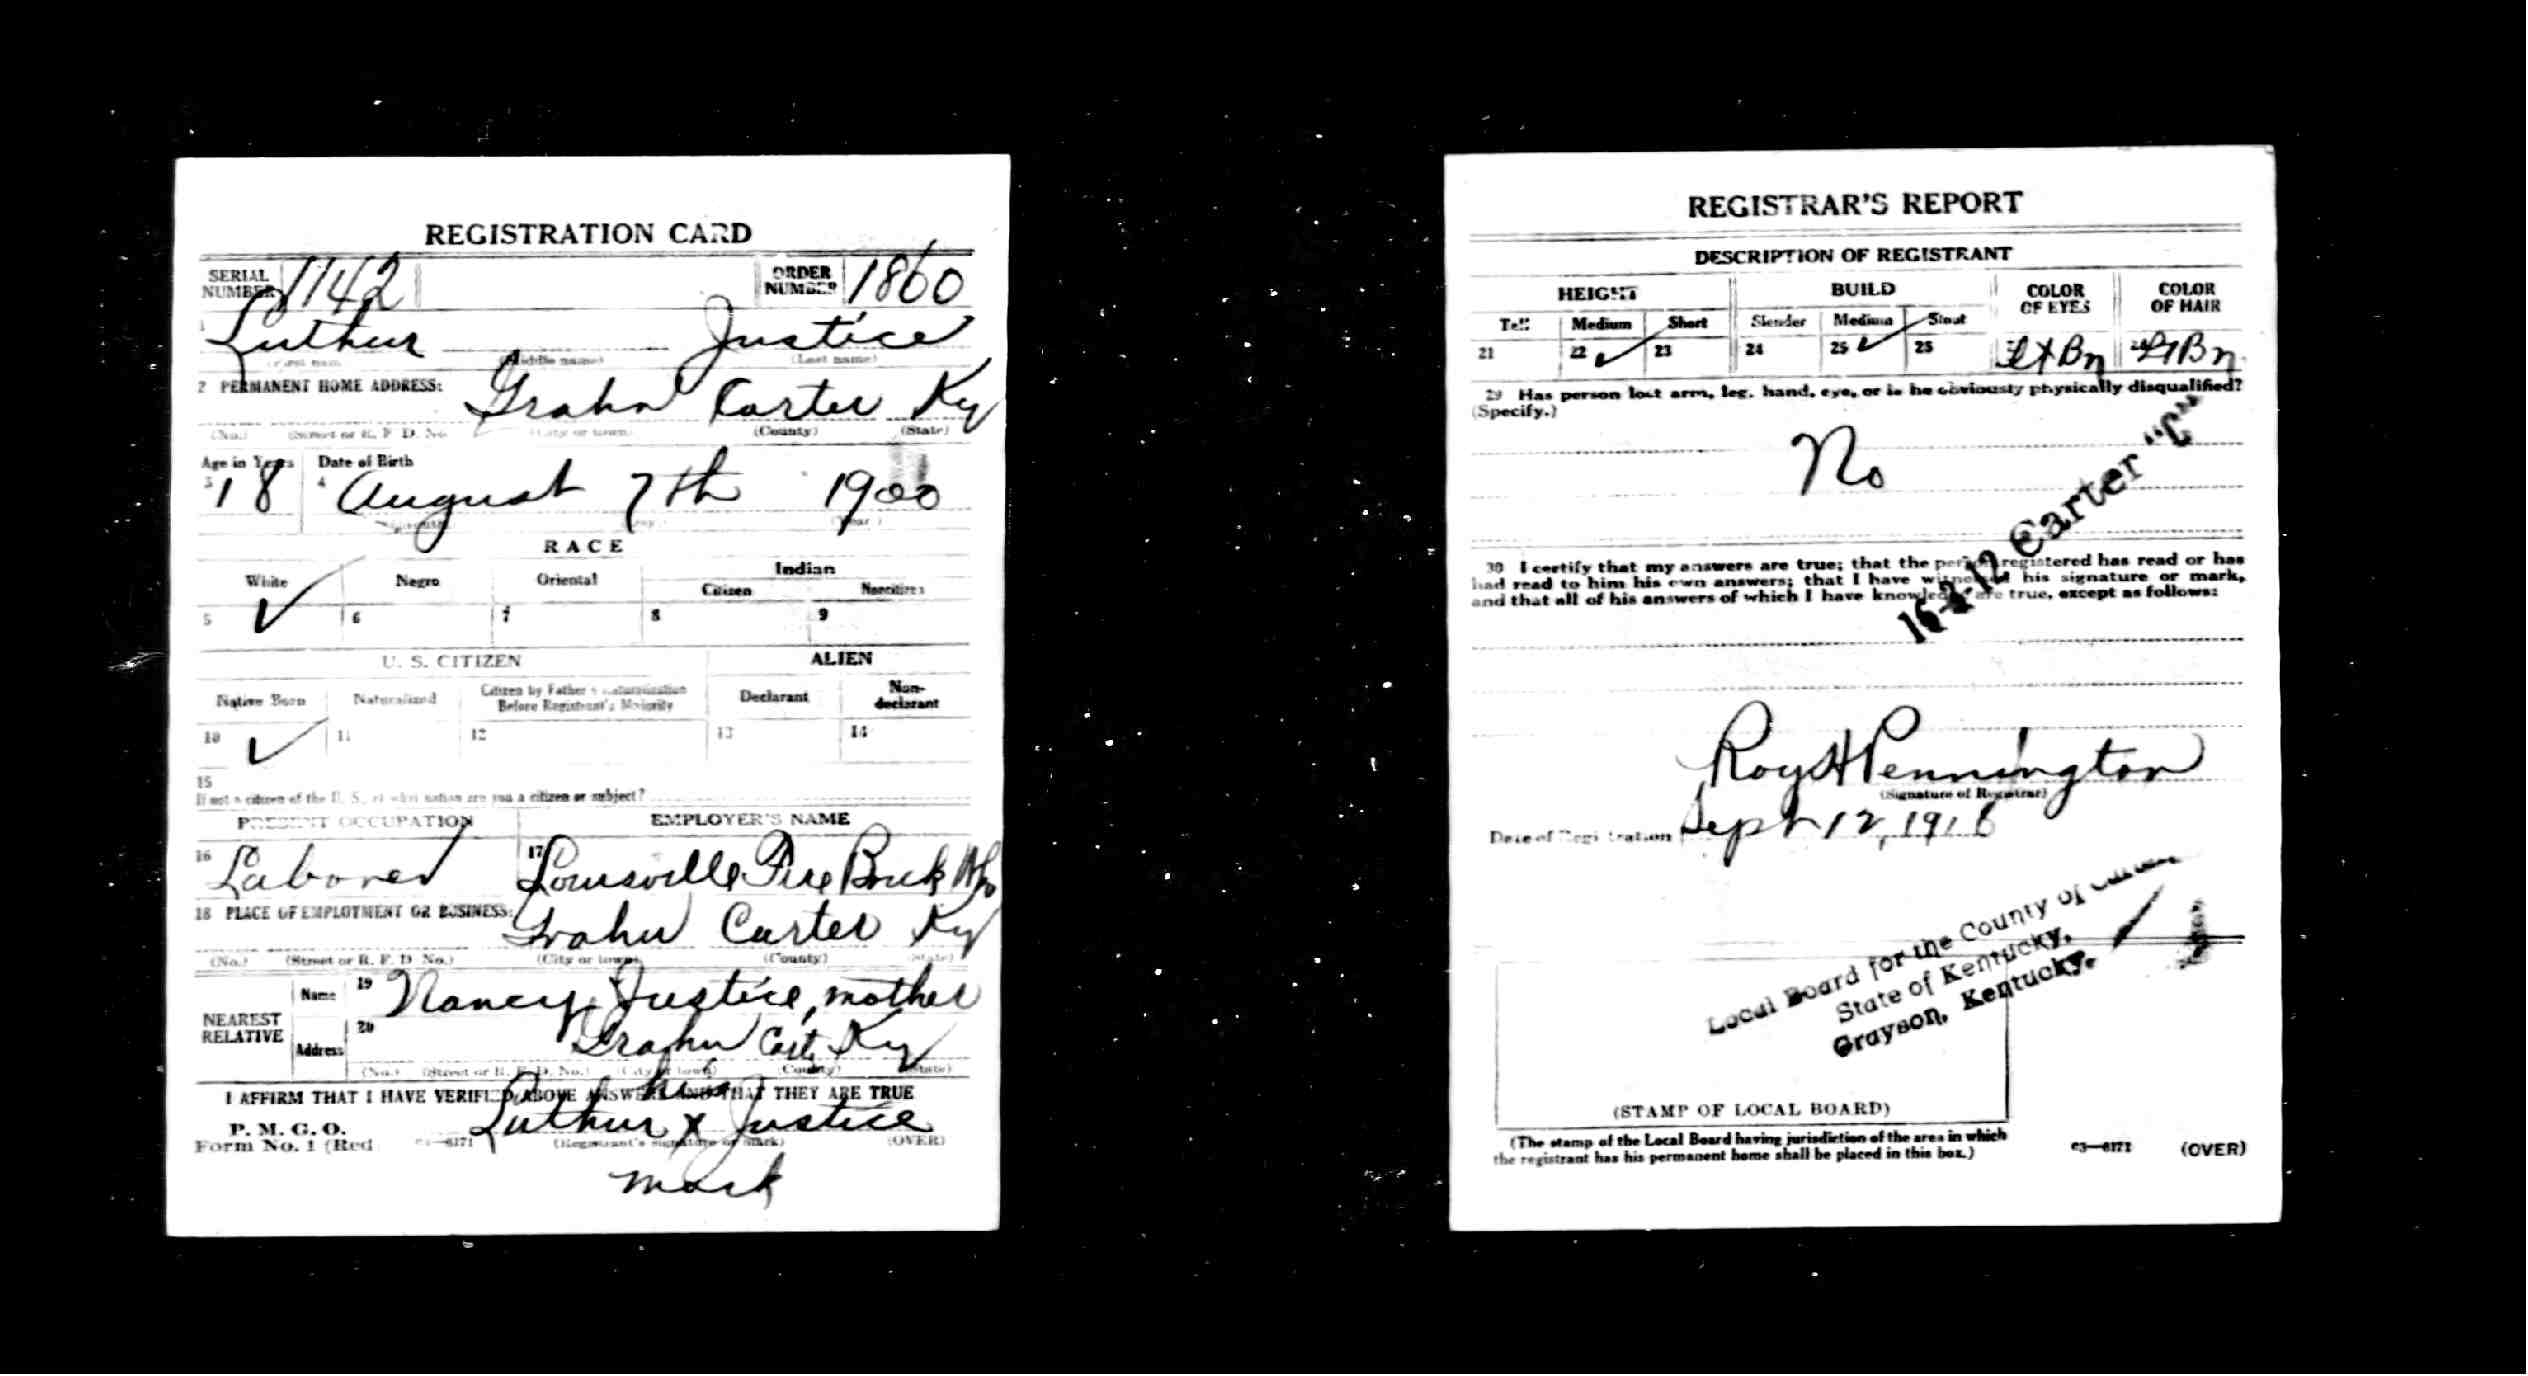 REGISTRATION CARD
SERIAL NUMBER 1142 ORDER NUMBER 1860
1 Luthur Justice
(First name) (Middle name) (Last name)
2 PERMANENT HOME ADDRESS: Grahn Carter Ky
(No.) (Street or R. F. D. No.) (City or town) (County) (State)
Age in Years Date of Birth
3 18 4 August 7th 1900
(Month) (Day) (Year)
RACE
White Negro Oriental Indian
Citizen Noncitizen
5 ✓ 6 7 8 9
U. S. CITIZEN ALIEN
Native Born Naturalized Citizen by Father's Naturalization Before Registrant's Majority Declarant Non-declarant
10 ✓ 11 12 13 14
15
If not a citizen of the U. S., of what nation are you a citizen or subject?
PRESENT OCCUPATION EMPLOYER'S NAME
16 Laborer 17 Louisville Fire Brick
18 PLACE OF EMPLOYMENT OR BUSINESS:
Grahn Carter Ky
(No.) (Street or R. F. D. No.) (City or town) (County) (State)
NEAREST RELATIVE Name 19 Nancy Justice, mother
Address 20 Grahn Cart, Ky
(No.) (Street or R. F. D. No.) (City or town) (County) (State)
I AFFIRM THAT I HAVE VERIFIED ABOVE ANSWERS AND THAT THEY ARE TRUE
his
P. M. G. O.
Form No. 1 (Red 03—6171 Luthur x Justice
(Registrant's signature or mark) (OVER)
mark
REGISTRAR'S REPORT
DESCRIPTION OF REGISTRANT
HEIGHT BUILD COLOR OF EYES COLOR OF HAIR
Tall Medium Short Slender Medium Stout
21 22 ✓ 23 24 25 ✓ 26 27 Lt Bn 28 Lt Bn
29 Has person lost arm, leg, hand, eye, or is he obviously physically disqualified?
(Specify.)
No
16-2-12 Carter "C"
30 I certify that my answers are true; that the person registered has read or has
had read to him his own answers; that I have witnessed his signature or mark,
and that all of his answers of which I have knowledge are true, except as follows:
Roy H Pennington
(Signature of Registrar)
Date of Registration Sept 12, 1918
Local Board for the County of Carter,
State of Kentucky,
Grayson, Kentucky.
(STAMP OF LOCAL BOARD)
(The stamp of the Local Board having jurisdiction of the area in which
the registrant has his permanent home shall be placed in this box.)
03—6171 (OVER)